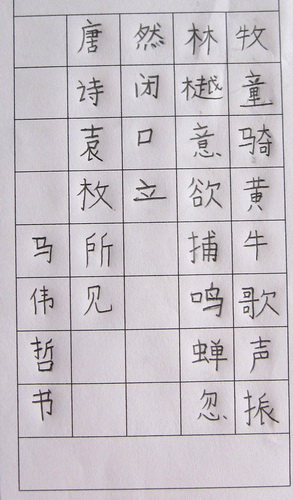 牧童骑黄牛歌声振
林樾意欲捕鸣蝉忽
然闭口立
唐诗袁枚所见
马伟哲书